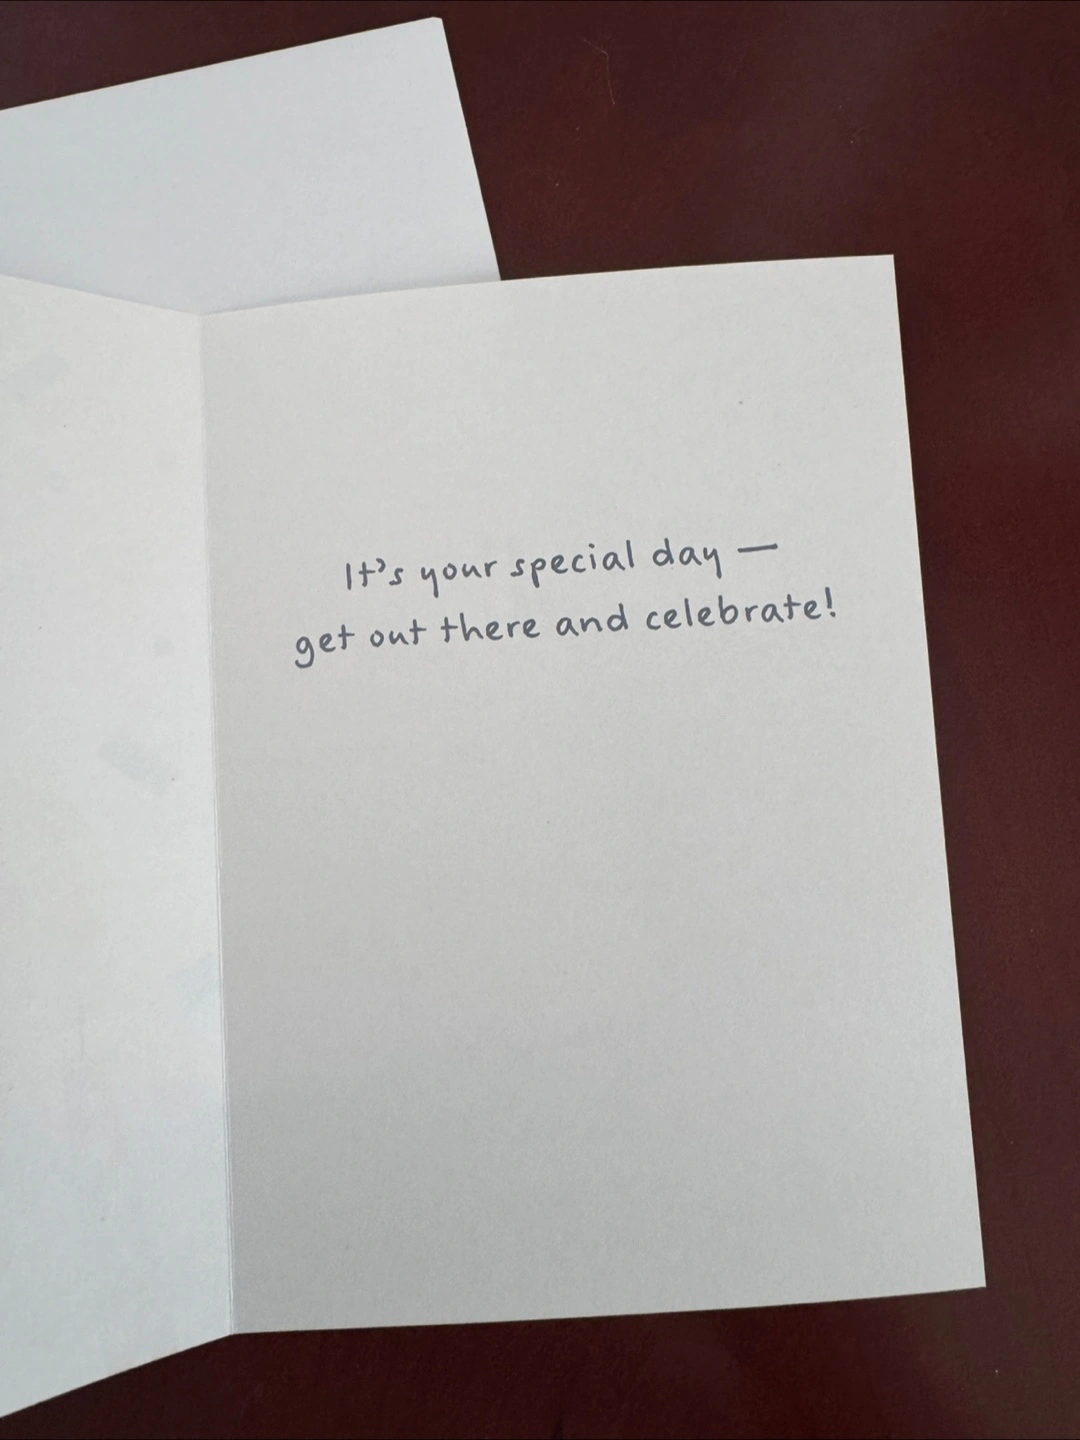 It's your special day —
get out there and celebrate!